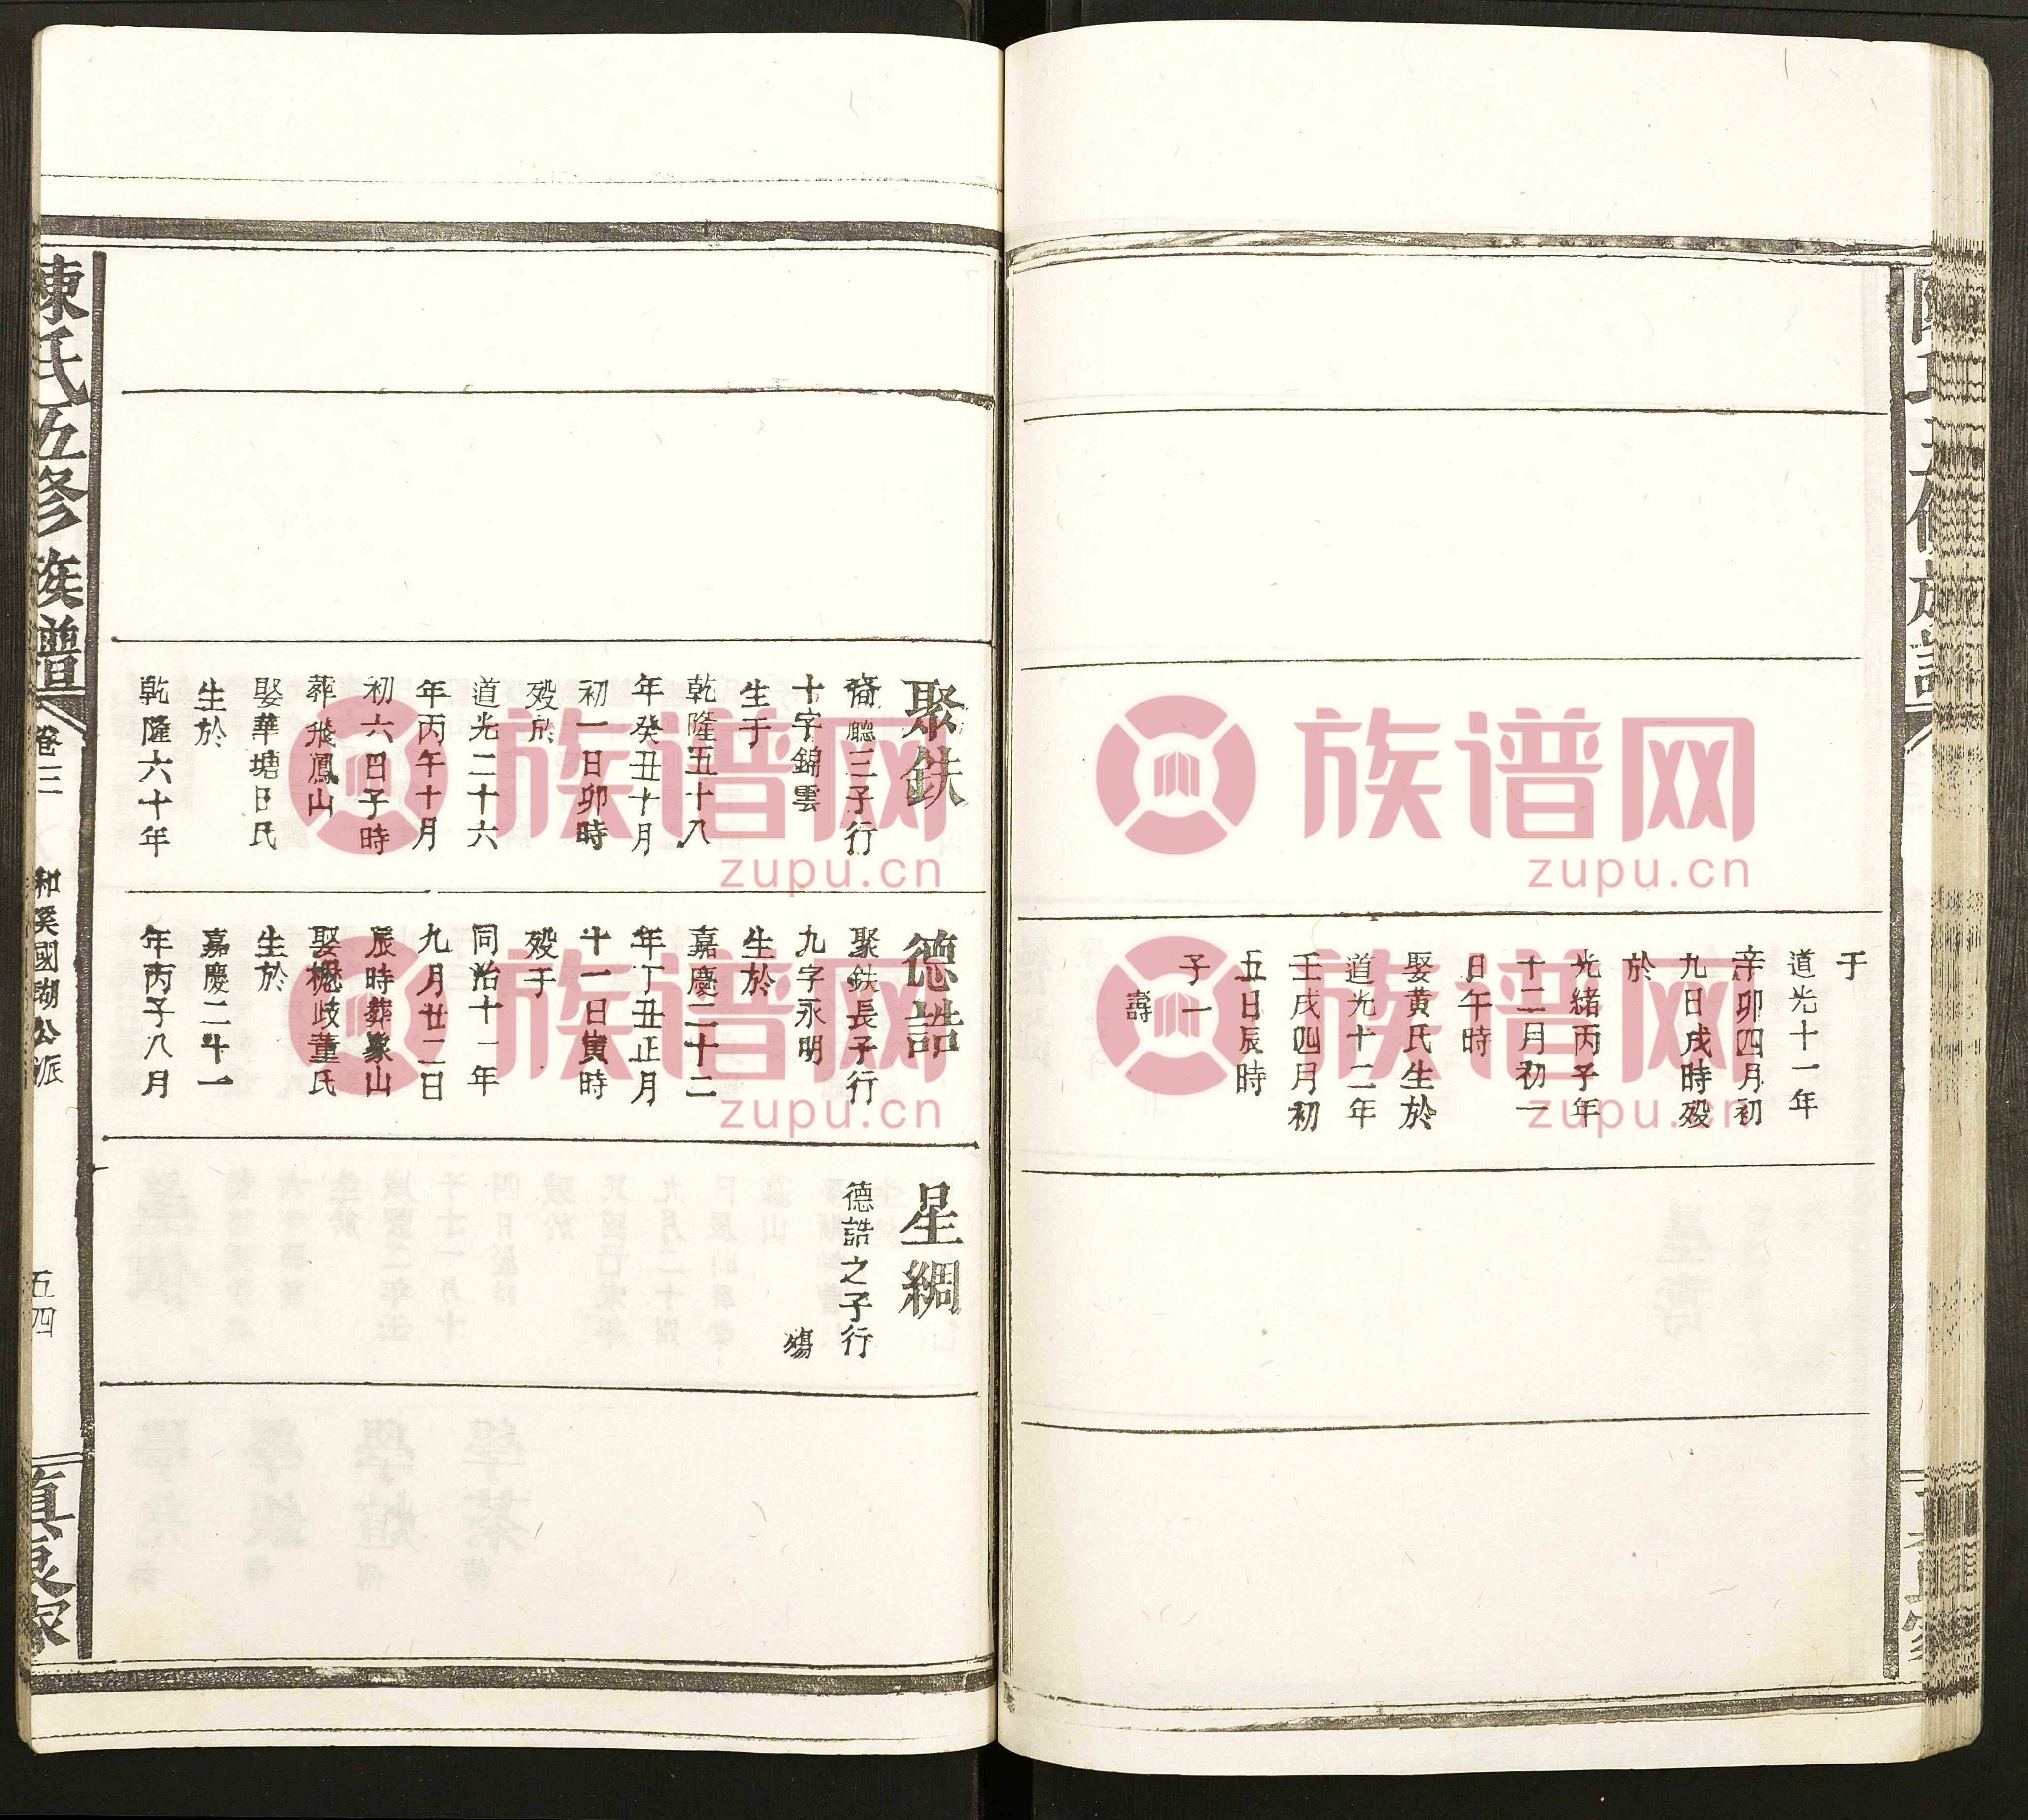 于
道光十一年
辛卯四月初
九日戌時殁
於
光緒丙子年
十二月初一
日午時
娶黄氏生於
道光十二年
壬戌四月初
五日辰時
子一
壽
聚鉄
裔聽三子行
十字錦雲
生于
乾隆五十八
年癸丑十月
初一日卯時
殁於
道光二十六
年丙午十月
初六日子時
葬飛鳳山
娶華塘日氏
生於
乾隆六十年
德誥
聚鉄長子行
九字永明
生於
嘉慶二十二
年丁丑正月
十一日寅時
殁于
同治十一年
九月廿二日
辰時葬象山
娶樾歧董氏
生於
嘉慶二十一
年丙子八月
星綢
德誥之子行
殤
陳氏五修族譜
卷三
和溪國瑚公派
五四
真良家
族谱网
zupu.cn
族谱网
zupu.cn
族谱网
zupu.cn
族谱网
zupu.cn